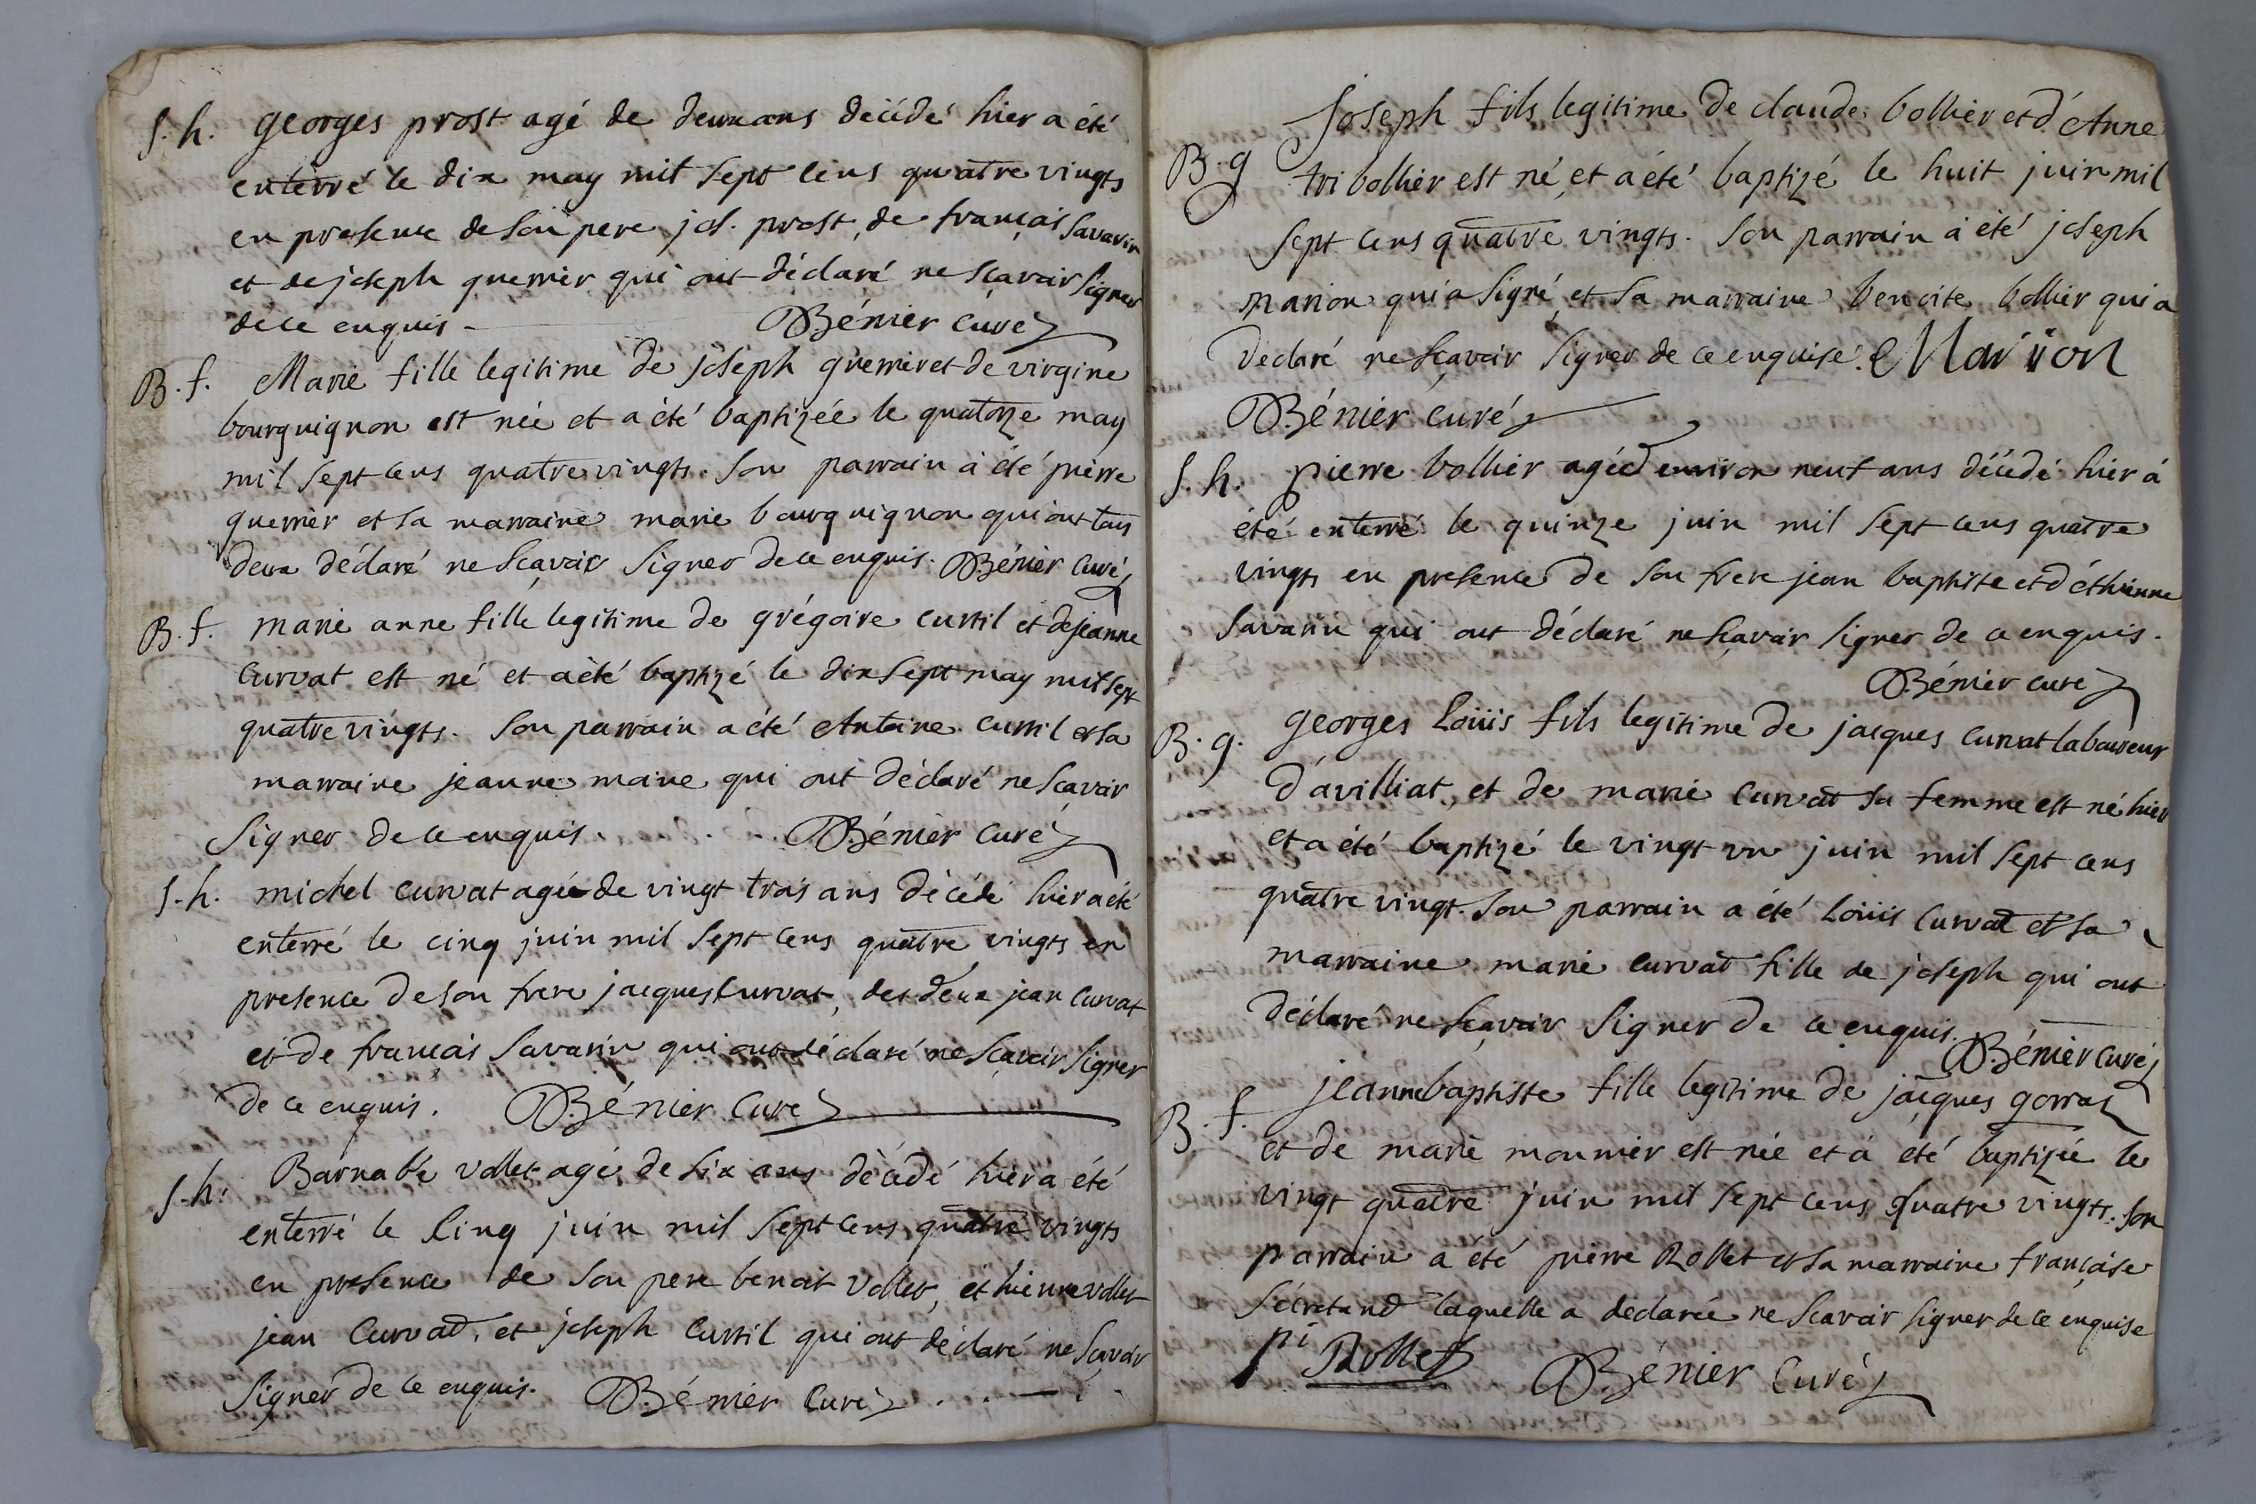 S.h. georges prost agé de deux ans décédé hier a été
enterré le dix may mil sept cens quatre vingts
en presence de son pere jos. prost, de français savarin
et de joseph guerrier qui ont déclaré ne sçavoir signer
de ce enquis - Bénier curé
B.f. Marie fille legitime de joseph guerrier et de virgine
bourguignon est née et a été baptizée le quatorze may
mil sept cens quatre vingts. son parrain à été pierre
guerrier et sa marraine marie bourguignon qui ont tous
deux déclaré ne sçavoir signer de ce enquis. Bénier curé
B.f. marie anne fille legitime de grégoire curtil et de jeanne
curvat est né et a été baptizé le dix sept may mil sept
quatre vingts. son parrain a été Antoine curtil et sa
marraine jeanne marie qui ont déclaré ne scavoir
signer de ce enquis. . . . Bénier curé
S.h. michel curvat agé de vingt trois ans décédé hier a été
enterré le cinq juin mil sept cens quatre vingts en
presence de son frere jacques curvat, des deux jean curvat
et de français savarin qui ont déclaré ne sçavoir signer
de ce enquis. Bénier curé
S.h. Barnabé vollet agé de six ans décédé hier a été
enterré le cinq juin mil sept cens quatre vingts
en presence de son pere benoit vollet, ethienne vollet
jean curvat, et joseph curtil qui ont déclaré ne sçavoir
signer de ce enquis. Bénier curé . . - .
Joseph fils legitime de claude bollier et d'Anne
B.g tribollier est né, et a été baptizé le huit juin mil
sept cens quatre vingts. son parrain à été joseph
marion qui a signé, et sa marraine benoite bollier qui a
declaré ne scavoir signer de ce enquise. Marion
Bénier curé
S.h. pierre bollier agé d'environ neuf ans décédé hier à
été enterré le quinze juin mil sept cens quatre
vingts en presence de son frere jean baptiste et d'éthienne
savarin qui ont déclaré ne sçavoir signer de ce enquis.
Bénier curé
B.g. georges Loüis fils legitime de jacques curvat laboureur
d'avilliat, et de marie curvat sa femme est né hier
et a été baptizé le vingt un juin mil sept cens
quatre vingt. son parrain a été Loüis curvat et sa
marraine marie curvat fille de joseph qui ont
déclaré ne sçavoir signer de ce enquis.
Bénier curé
jeanne baptiste fille legitime de jacques gorraz
B.f. et de marie monnier est née et à été baptizée le
vingt quatre juin mil sept cens quatre vingts. son
parrain a été pierre Rollet et sa marraine française
sécretand laquelle a declarée ne scavoir signer de ce enquise
pi Rollet Bénier curé